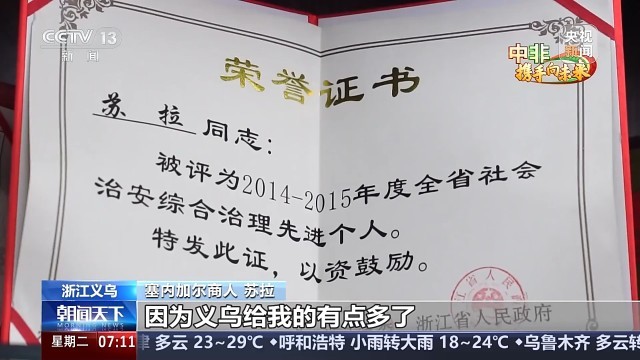 CCTV 13
新闻
央视新闻
中非
携手向未来
荣誉证书
苏拉同志：
被评为2014-2015年度全省社会
治安综合治理先进个人。
特发此证，以资鼓励。
浙江省人民政府
浙江义乌
塞内加尔商人 苏拉
朝闻天下
因为义乌给我的有点多了
星期二 07:11
多云 23~29℃ ·呼和浩特 小雨转大雨 18~24℃ ·乌鲁木齐 多云转